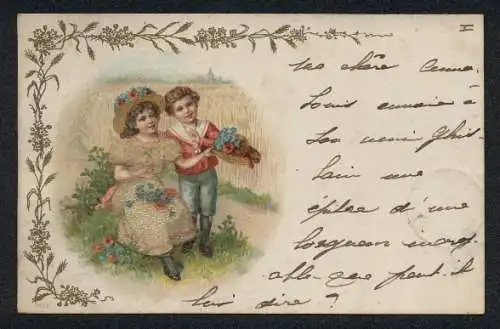 ma chère Anna
Louis envoie à
son ami Ghis-
lain une
épître d'une
longueur remarqu-
able que peut-il
lui dire ?